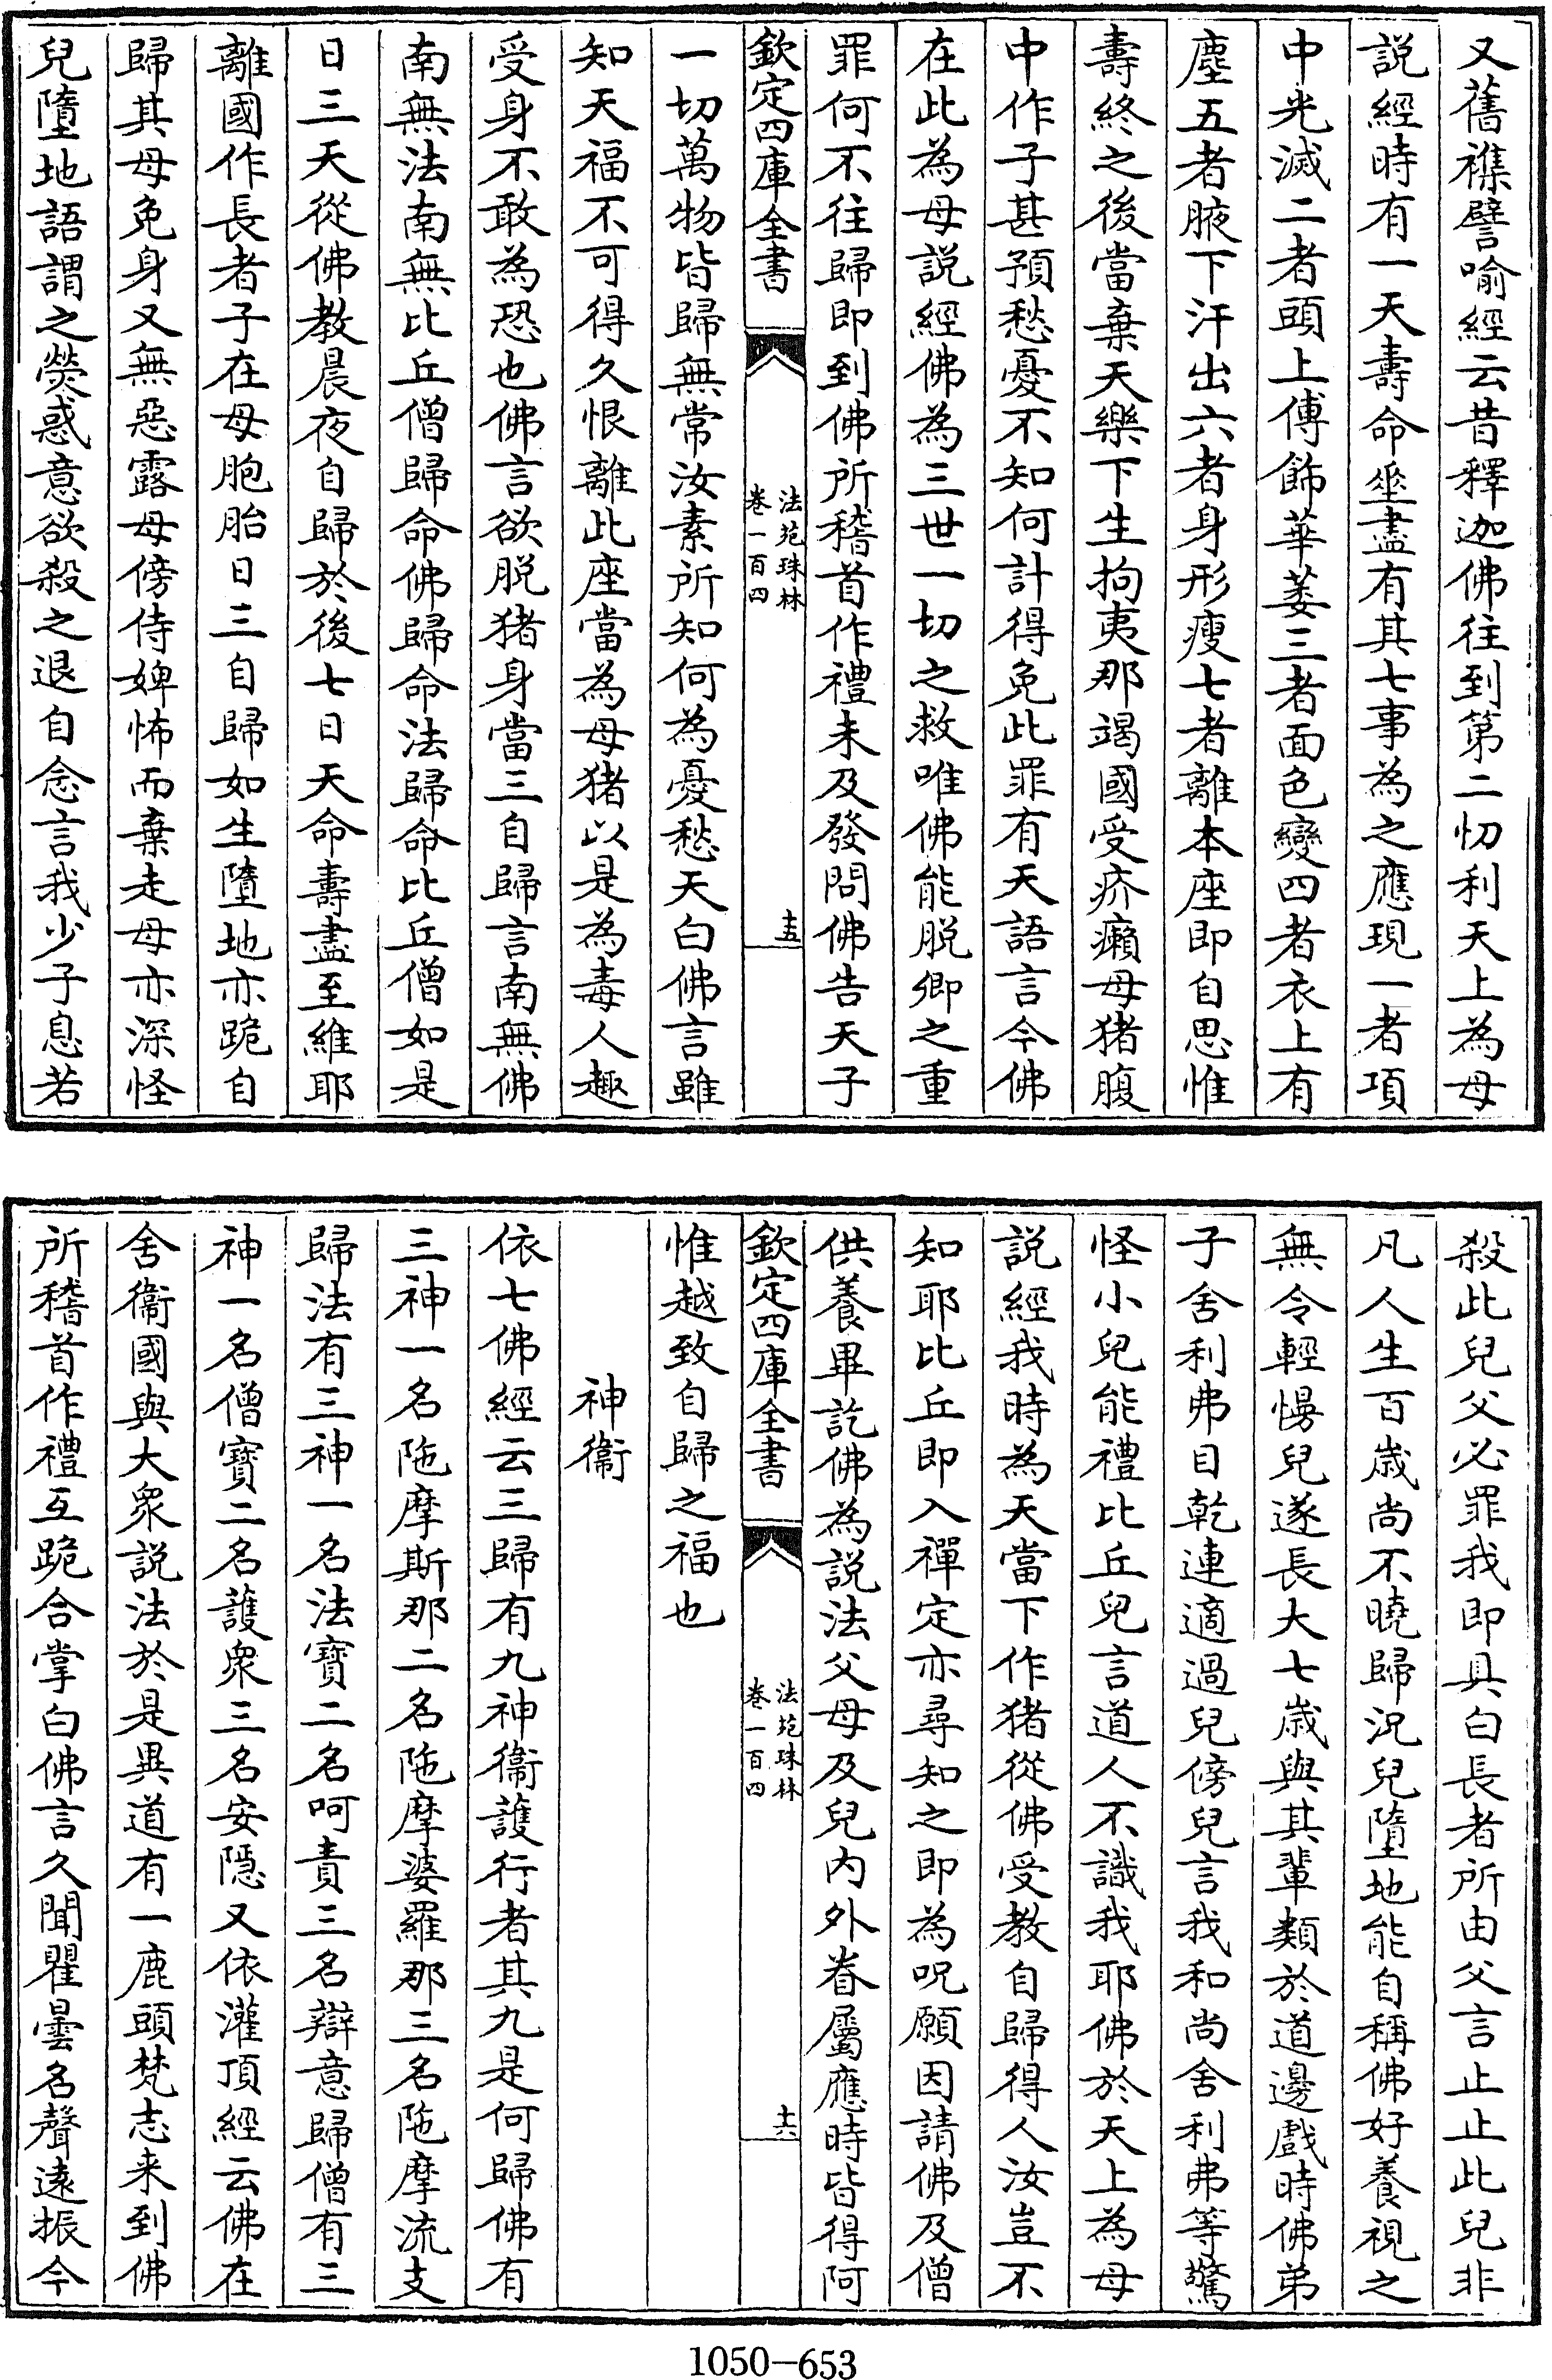 又舊襍譬喻經云昔釋迦佛往到第二忉利天上為母
説經時有一天壽命垂盡有其七事為之應現一者項
中光滅二者頭上傅飾華萎三者面色變四者衣上有
塵五者腋下汗出六者身形瘦七者離本座即自思惟
壽終之後當棄天樂下生拘夷那竭國受疥癩母猪腹
中作子甚預愁憂不知何計得免此罪有天語言今佛
在此為母説經佛為三世一切之救唯佛能脱卿之重
罪何不往歸即到佛所稽首作禮未及發問佛告天子
欽定四庫全書
法苑珠林
卷一百四
十五
一切萬物皆歸無常汝素所知何為憂愁天白佛言雖
知天福不可得久恨離此座當為母猪以是為毒人趣
受身不敢為恐也佛言欲脱猪身當三自歸言南無佛
南無法南無比丘僧歸命佛歸命法歸命比丘僧如是
日三天從佛教晨夜自歸於後七日天命壽盡至維耶
離國作長者子在母胞胎日三自歸如生墮地亦跪自
歸其母免身又無惡露母傍侍婢怖而棄走母亦深怪
兒墮地語謂之熒惑意欲殺之退自念言我少子息若
殺此兒父必罪我即具白長者所由父言止止此兒非
凡人生百歳尚不曉歸況兒墮地能自稱佛好養視之
無令輕慢兒遂長大七歳與其輩類於道邊戲時佛弟
子舍利弗目乾連適過兒傍兒言我和尚舍利弗等驚
怪小兒能禮比丘兒言道人不識我耶佛於天上為母
説經我時為天當下作猪從佛受教自歸得人汝豈不
知耶比丘即入禪定亦尋知之即為呪願因請佛及僧
供養畢訖佛為説法父母及兒内外眷屬應時皆得阿
欽定四庫全書
法苑珠林
卷一百四
十六
惟越致自歸之福也
神衞
依七佛經云三歸有九神衞護行者其九是何歸佛有
三神一名陁摩斯那二名陁摩婆羅那三名陁摩流支
歸法有三神一名法寳二名呵責三名辯意歸僧有三
神一名僧寳二名護衆三名安隠又依灌頂經云佛在
舍衞國與大衆説法於是異道有一鹿頭梵志来到佛
所稽首作禮互跪合掌白佛言久聞瞿曇名聲遠振今
1050—653